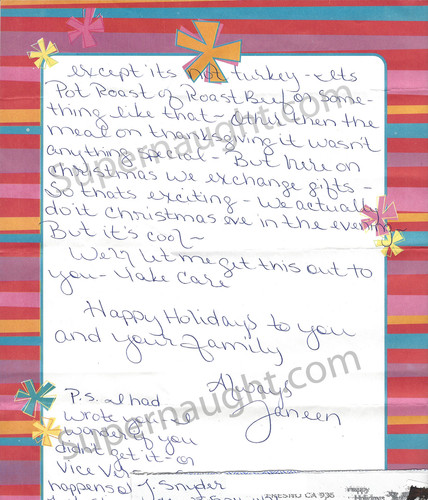 except its not turkey - its
Pot Roast or Roast Beef or some-
thing like that - Other then the
meal on thanksgiving it wasn't
anything special - But here on
Christmas we exchange gifts -
so thats exciting - We actually
do it Christmas eve in the evening -
But it's cool ~
Well let me get this out to
you - Take Care
Happy Holidays to you
and your family
Always
Janeen
P.S. I had
wrote you
wonder if you
didn't get it - or
Vice Versa
happens a
J. Snyder
FRESNO CA 936
Happy
Holidays
Supernaught.com
Supernaught.com
Supernaught.com